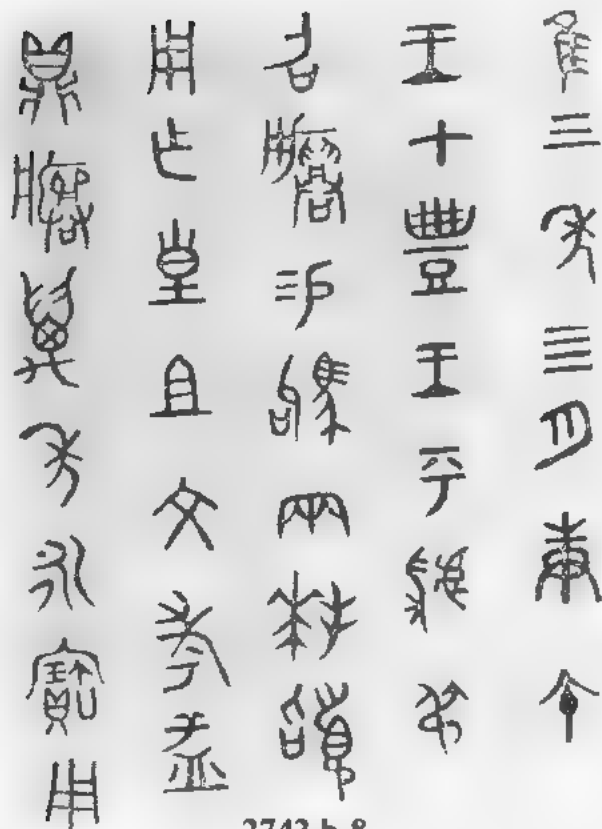 隹三年四月庚午
王才豐王乎虢弔
召𤼈易駒兩拜𩒨
用乍皇且文考盂
鼎𤼈萬年永寶用